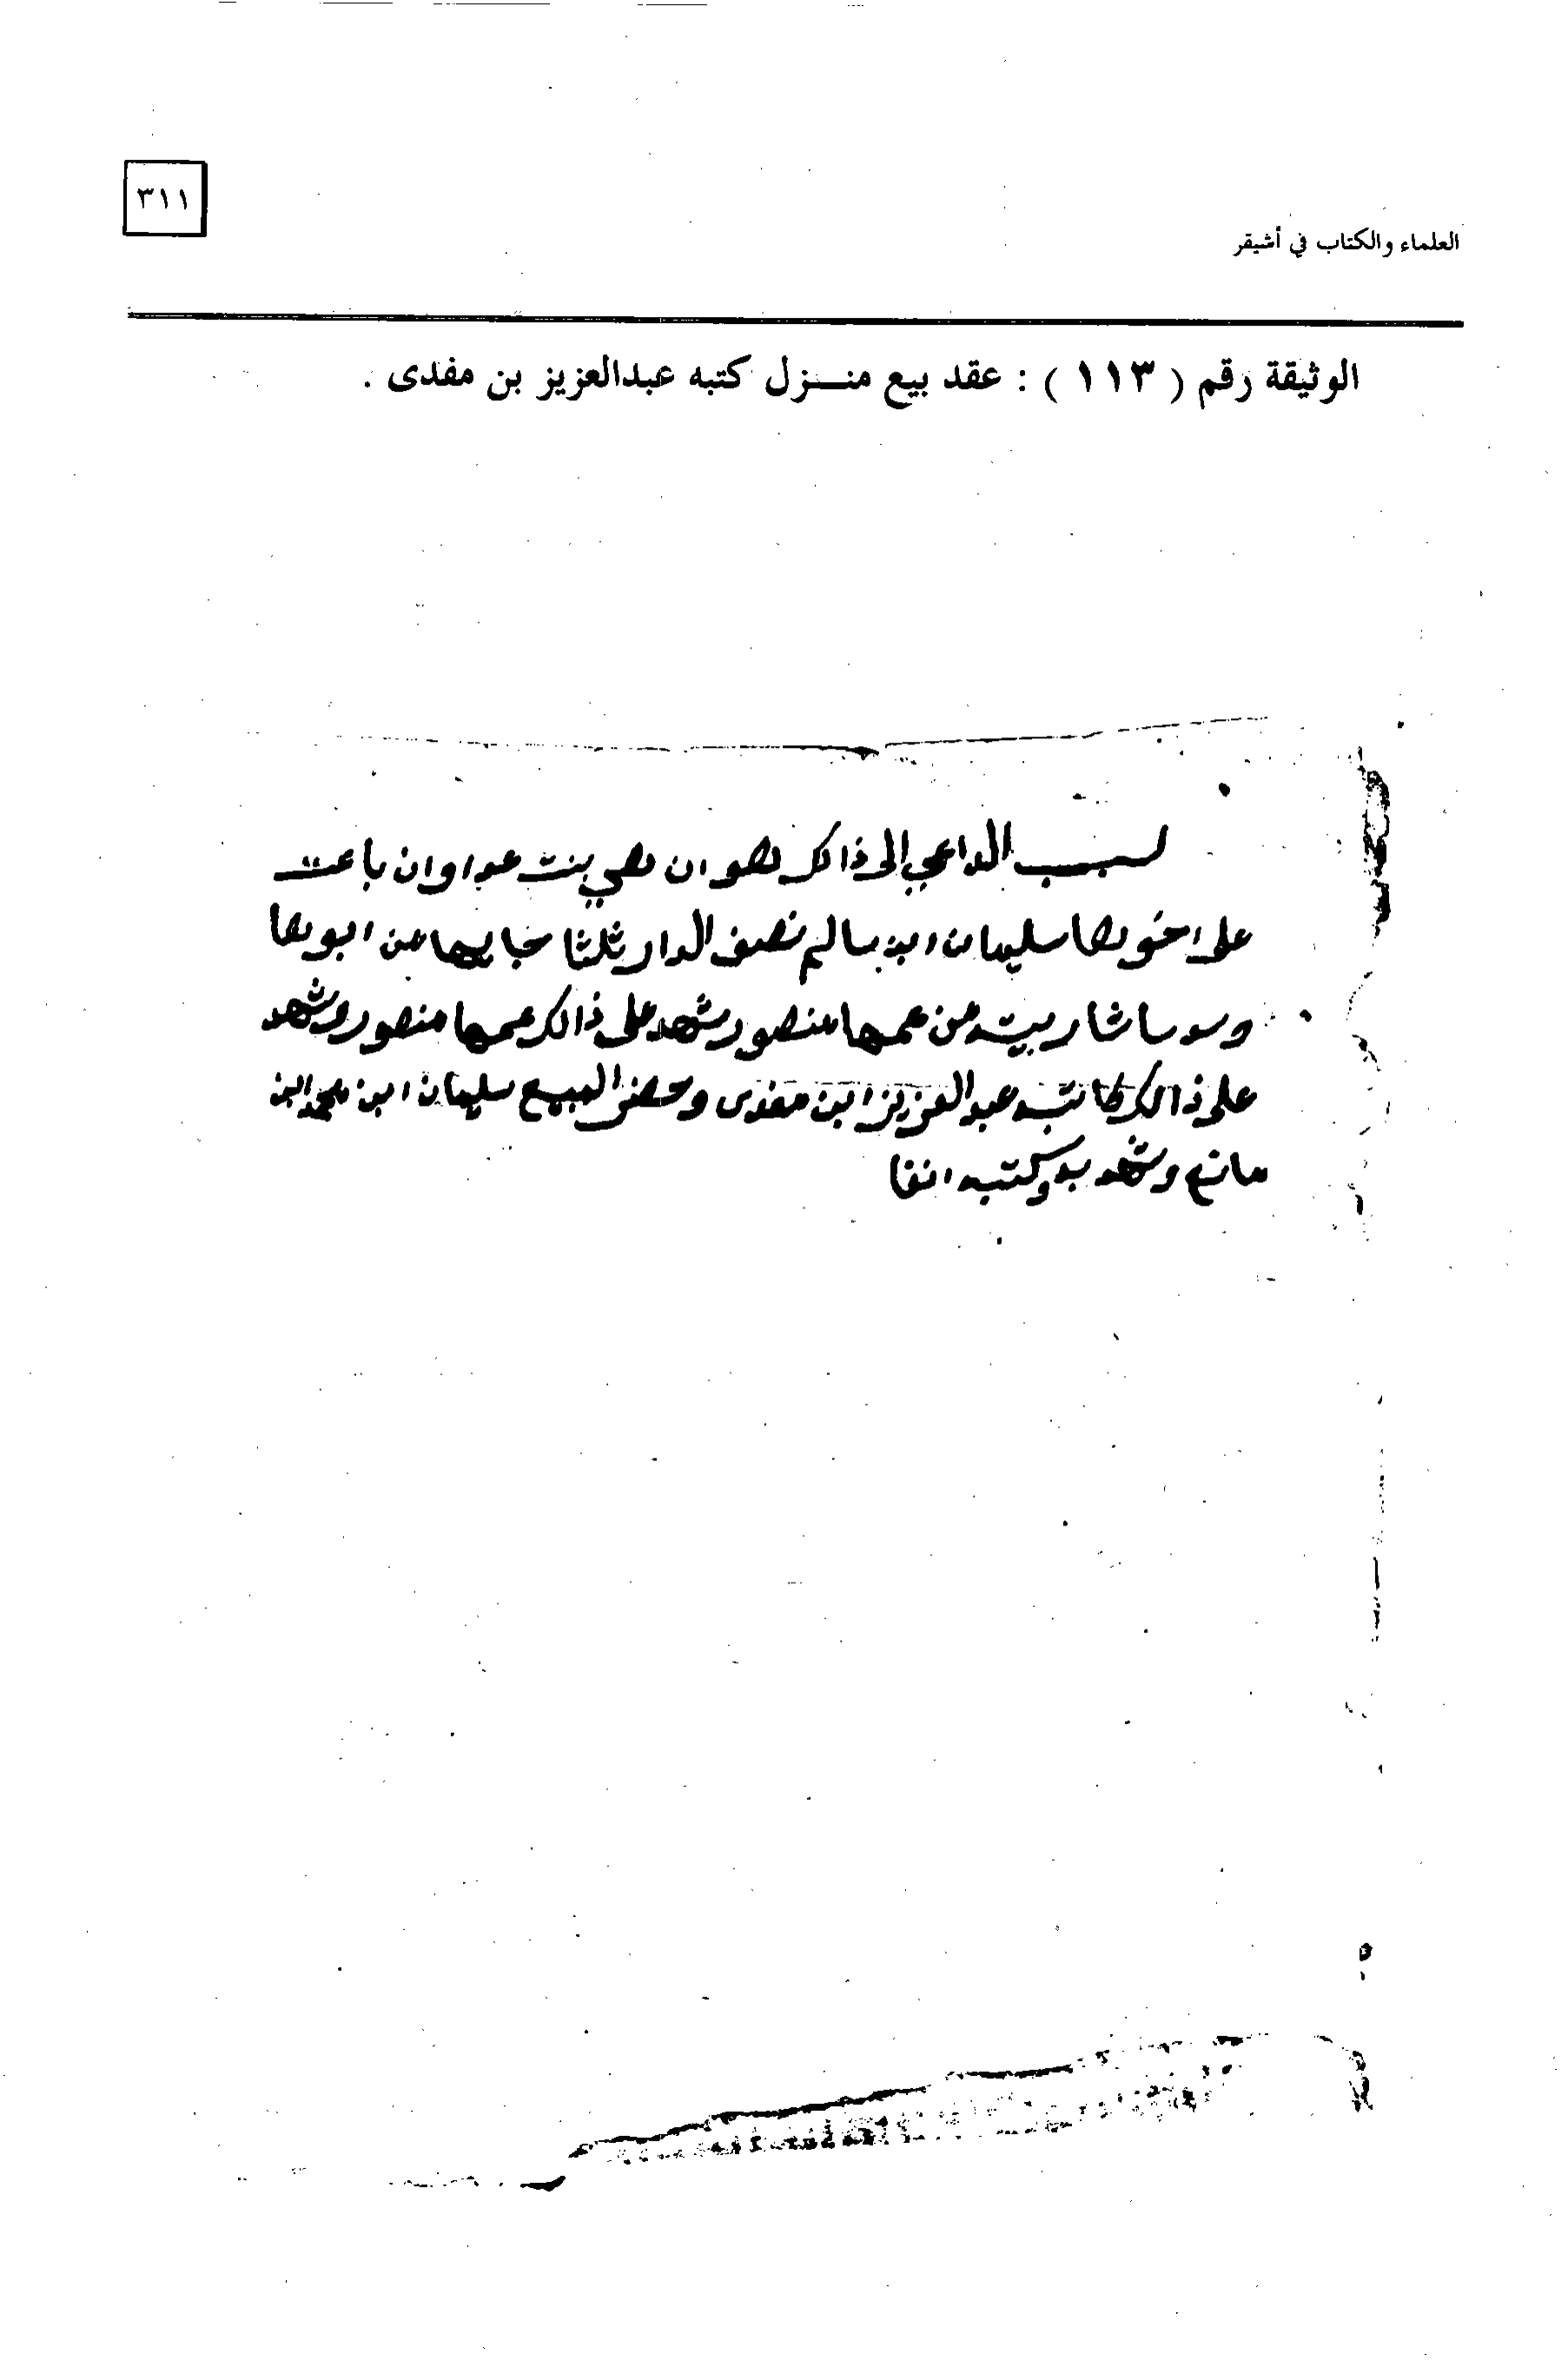 ٣١١
العلماء والكتاب في أشيقر
الوثيقة رقم ( ١١٣ ) : عقد بيع منـزل كتبه عبدالعزيز بن مفدى .
لسبب الداعي إلى ذالك هو ان هي بنت عدوان باعت
على اخوها سليمان ابن سالم نصف الدار ثلثا جايها من ابوها
وسدسا شاريته من عمها منصور شهد على ذالك عمها منصور وشهد
على ذالك كاتبه عبد العزيز ابن مفدى وحضر البيع سليمان ابن محمد ابن
مانع وشهد به وكتبه انفا